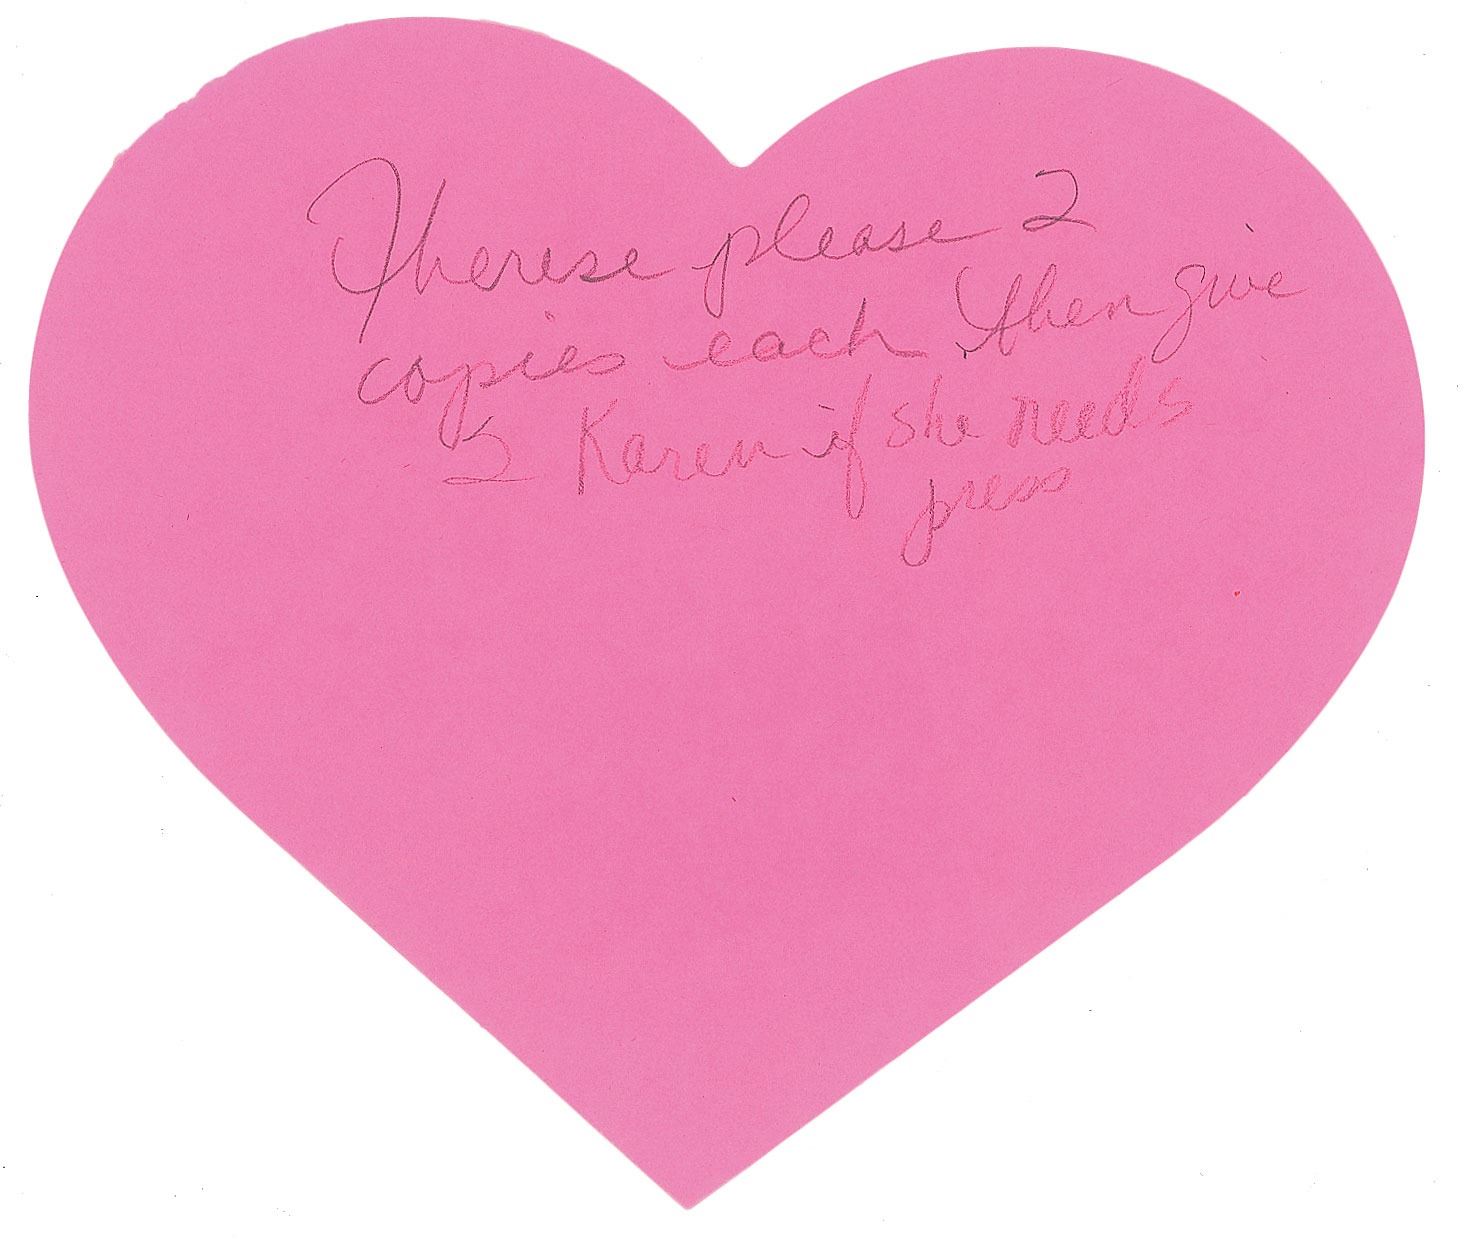 Therese please 2
copies each then give
2 Karen if she needs
press